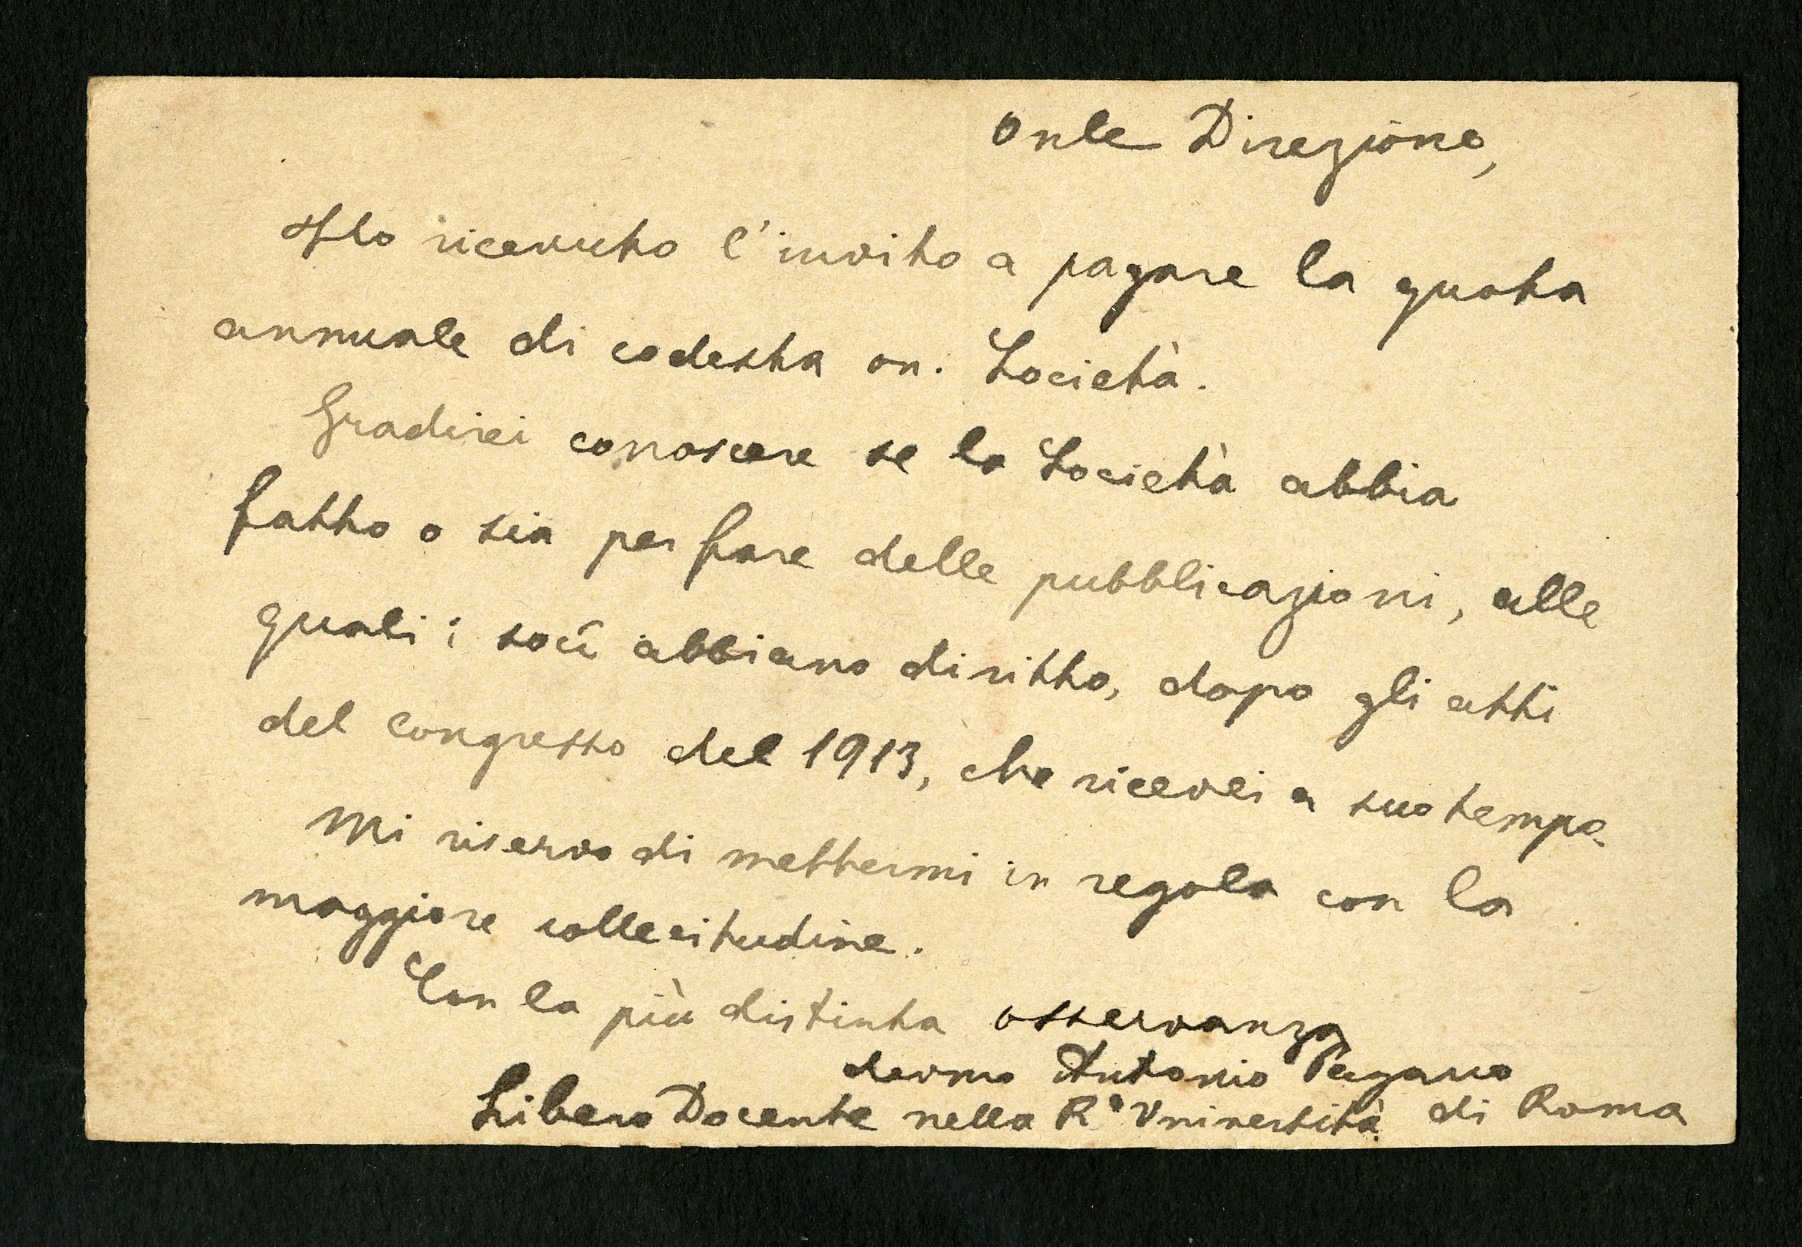 Onle Direzione,
Ho ricevuto l'invito a pagare la quota
annuale di codesta on. Società.
Gradirei conoscere se la Società abbia
fatto o sia per fare delle pubblicazioni, alle
quali i socî abbiano diritto, dopo gli atti
del congresso del 1913, che ricevei a suo tempo.
Mi riservo di mettermi in regola con la
maggiore sollecitudine.
Con la più distinta osservanza
devmo Antonio Pagano
Libero Docente nella Ra Università di Roma